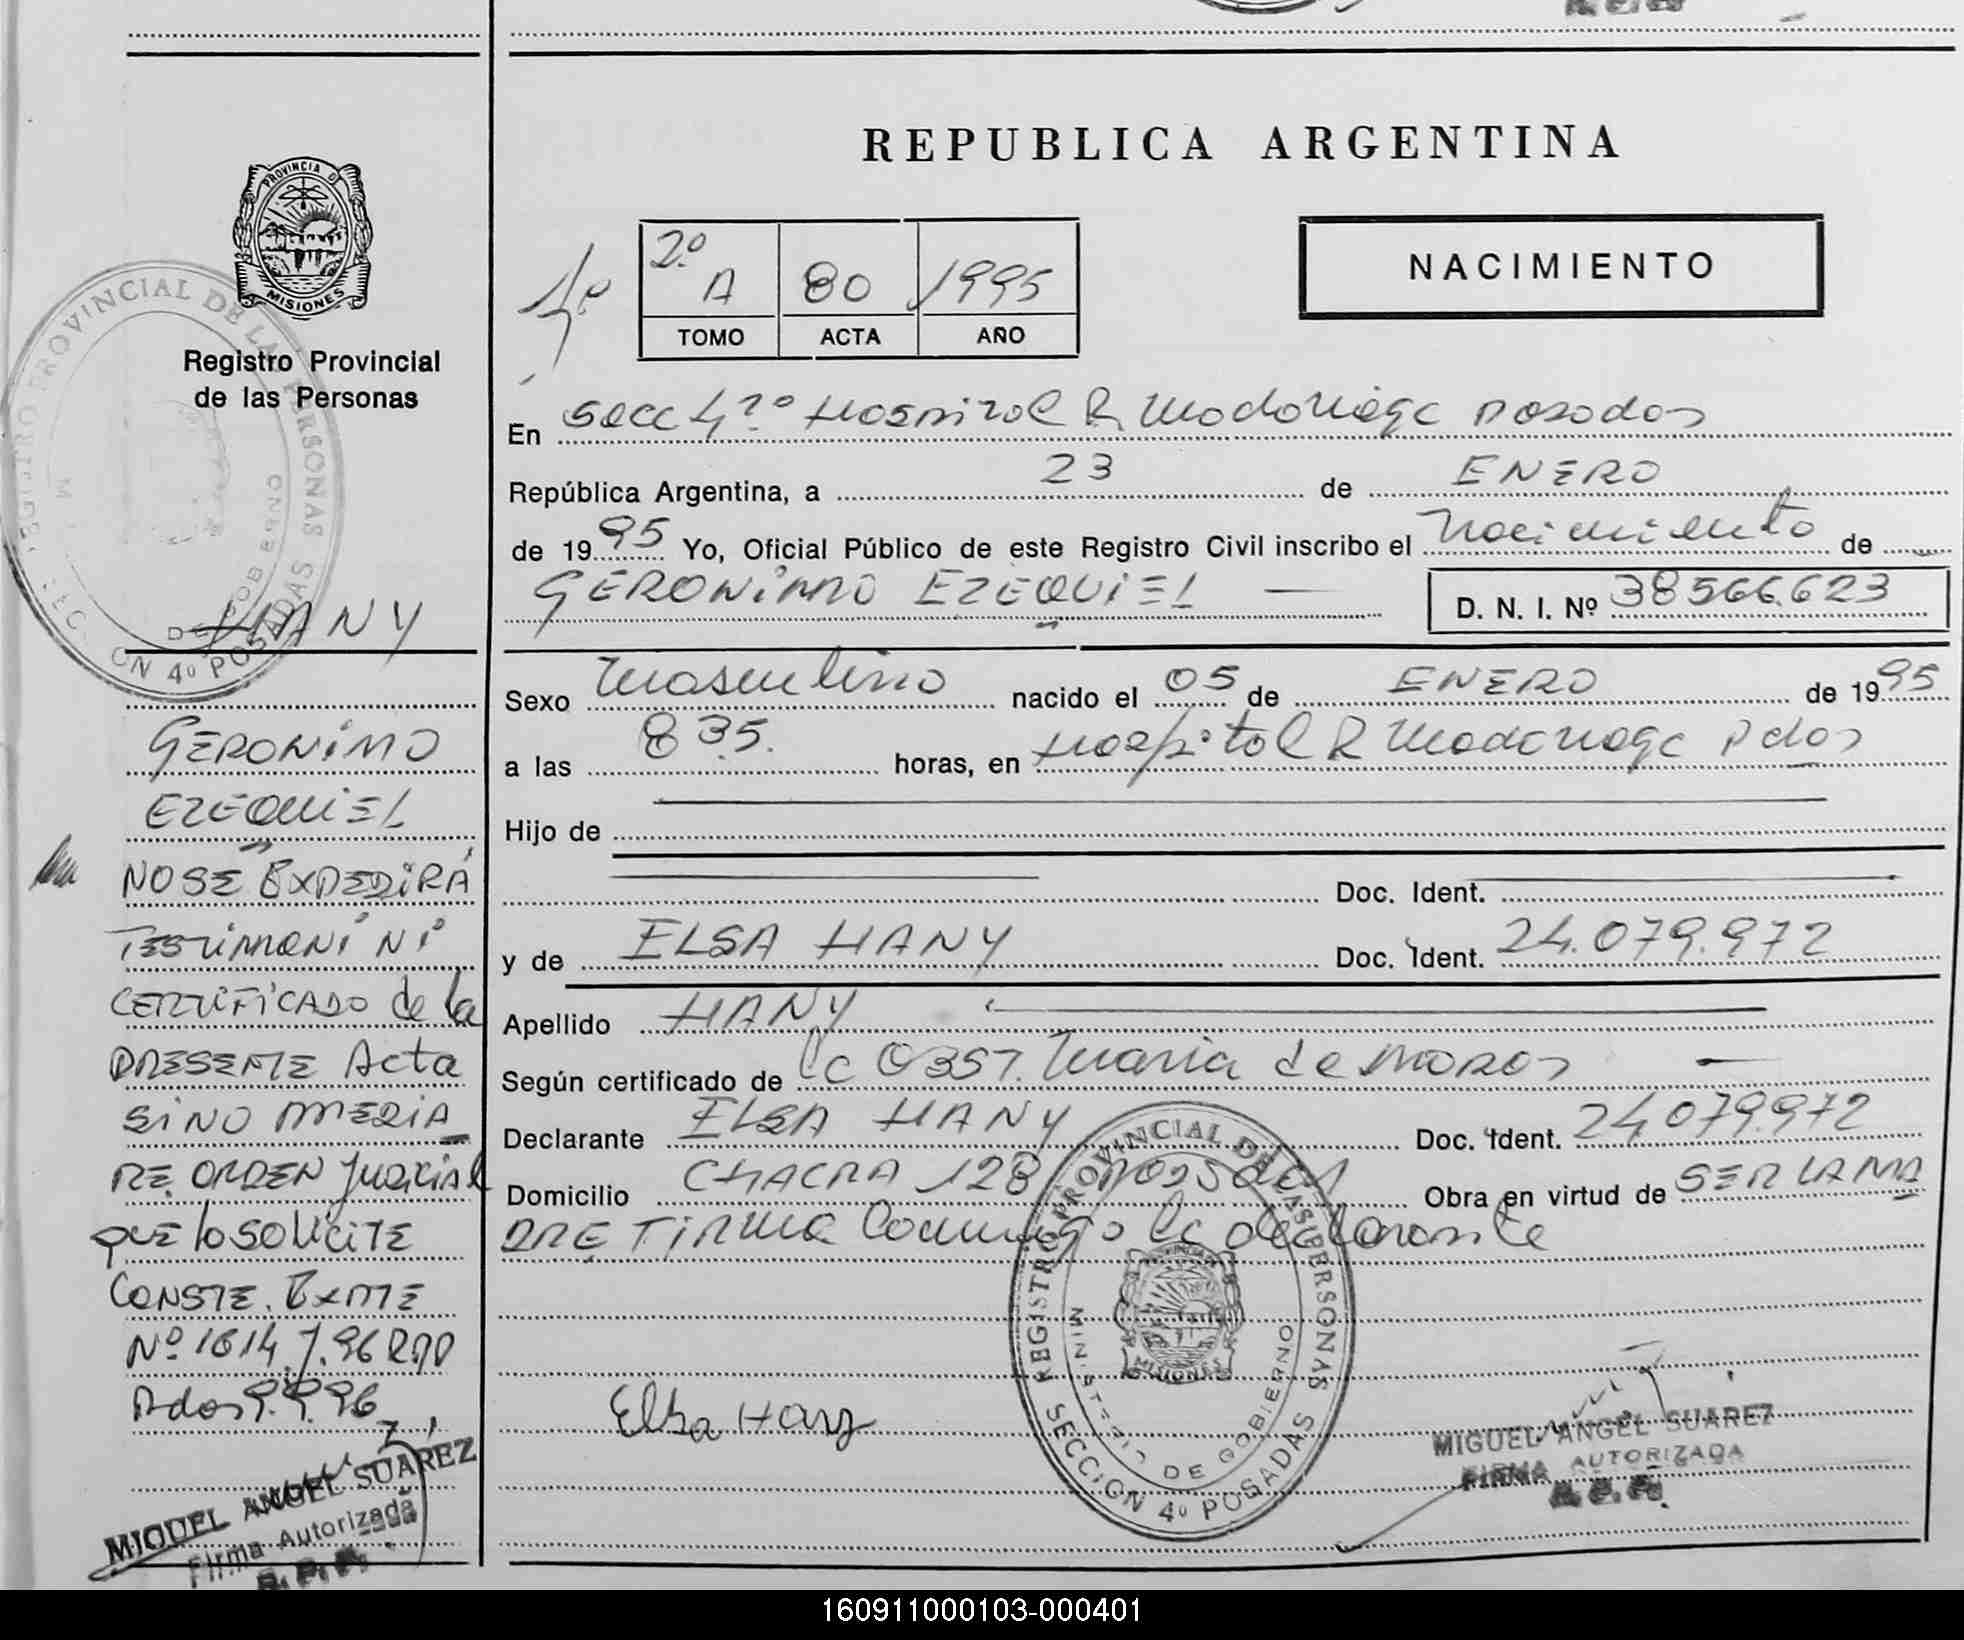 REPUBLICA ARGENTINA
PROVINCIA D
MISIONES
Registro Provincial
de las Personas
REGISTRO PROVINCIAL DE LAS PERSONAS
DE GOBIERNO
SECCION 4º POSADAS
HANY
GERONIMO
EZEQUIEL
NO SE EXPEDIRÁ
TESTIMONI NI
CERTIFICADO de la
PRESENTE Acta
SINO MEDIA
RE ORDEN Judicial
que lo solicite
CONSTE. EXPTE
Nº 1614/96 RPP
Pdas 9.9.96
MIGUEL ANGEL SUAREZ
Firma Autorizada
R. P. P.
4º
2.º A 80 1995
TOMO ACTA AÑO
NACIMIENTO
En Secc 4º Hospital R Madariaga Posadas
República Argentina, a 23 de ENERO
de 1995 Yo, Oficial Público de este Registro Civil inscribo el Nacimiento de
GERONIMO EZEQUIEL D. N. I. Nº 38566.623
Sexo Masculino nacido el 05 de ENERO de 1995
a las 8 35. horas, en Hospital R Madariaga Pdas
Hijo de
Doc. Ident.
y de ELSA HANY Doc. Ident. 24.079.972
Apellido HANY
Según certificado de la OBST. Maria de MOROS
Declarante ELSA HANY Doc. Ident. 24.079.972
Domicilio CHACRA 128 Posadas Obra en virtud de SER LA MA
DRE Firma Conmigo la declarante
REGISTRO PROVINCIAL DE LAS PERSONAS
MINISTERIO DE GOBIERNO
MISIONES
SECCION 4º POSADAS
Elsa Hany
MIGUEL ANGEL SUAREZ
FIRMA AUTORIZADA
R. P. P.
160911000103-000401